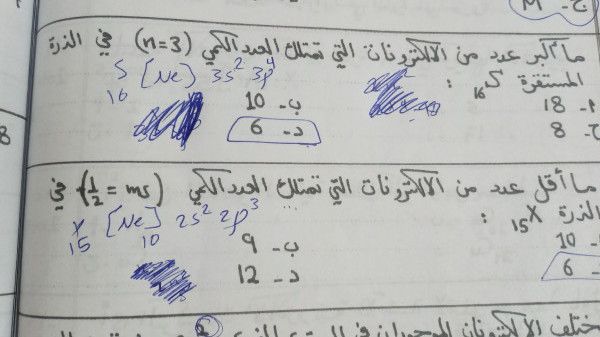 ج- M
ما أكبر عدد من الالكترونات التي تمتلك العدد الكمي (n=3) في الذرة
المستقرة ₁₆S :
S [Ne] 3s² 3p⁴
16
أ- 18
ب- 10
ج- 8
د- 6
8
ما أقل عدد من الالكترونات التي تمتلك العدد الكمي (ms = ½) في
الذرة ₁₅X :
X [Ne] 2s² 2p³
15 10
- 10
ب- 9
- 6
د- 12